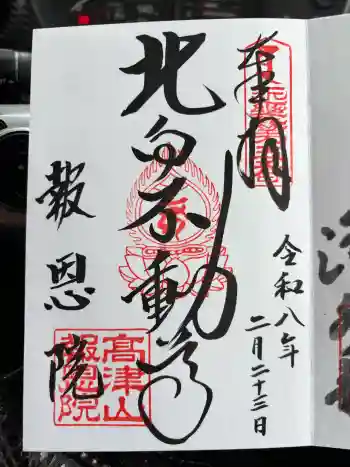 奉拝
令和八年
二月二十三日
北向不動尊
報恩院
高津山
報恩院